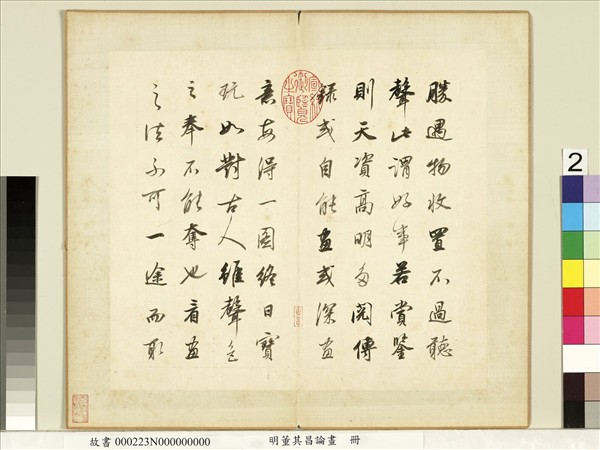 勝遇物收置不過聽
聲此謂好事若賞鑒
則天資高明多閱傳
錄或自能畫或深畫
意每得一圖終日寶
玩如對古人雖聲色
之奉不能奪也看畫
之法不可一途而取
宣統御覽之寶
2
故書 000223N000000000
明董其昌論畫 冊